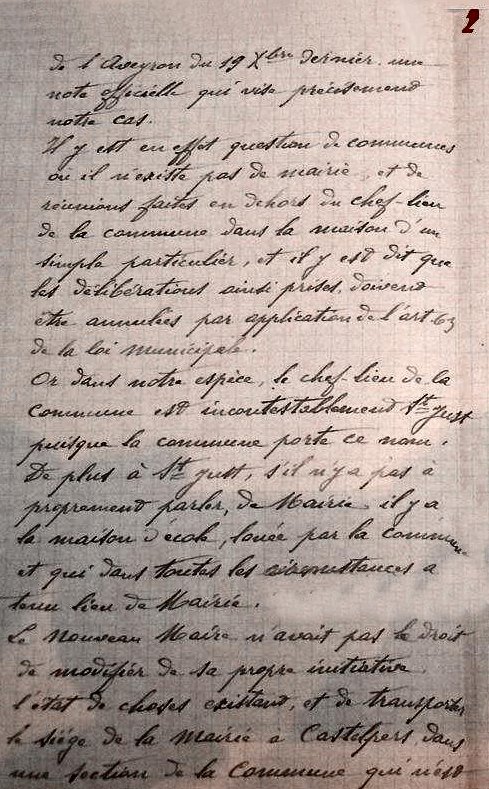 2
de l'Aveyron du 19 Xbre dernier une
note officielle qui vise précisement
notre cas.
Il y est en effet question de communes
ou il n'existe pas de mairie, et de
réunions faites en dehors du chef-lieu
de la commune dans la maison d'un
simple particulier, et il y est dit que
les délibérations ainsi prises doivent
être annulées par application de l'art. 63
de la loi municipale.
Or dans notre espèce, le chef-lieu de la
commune est incontestablement St Just
puisque la commune porte ce nom.
De plus à St Just, s'il n'y a pas à
proprement parler, de Mairie il y a
la maison d'école, louée par la commune
et qui dans toutes les circonstances a
tenu lieu de Mairie.
Le nouveau Maire n'avait pas le droit
de modifier de sa propre initiative
l'état de choses existant, et de transporter
le siége de la mairie a Castelpers, dans
une section de la commune qui n'est